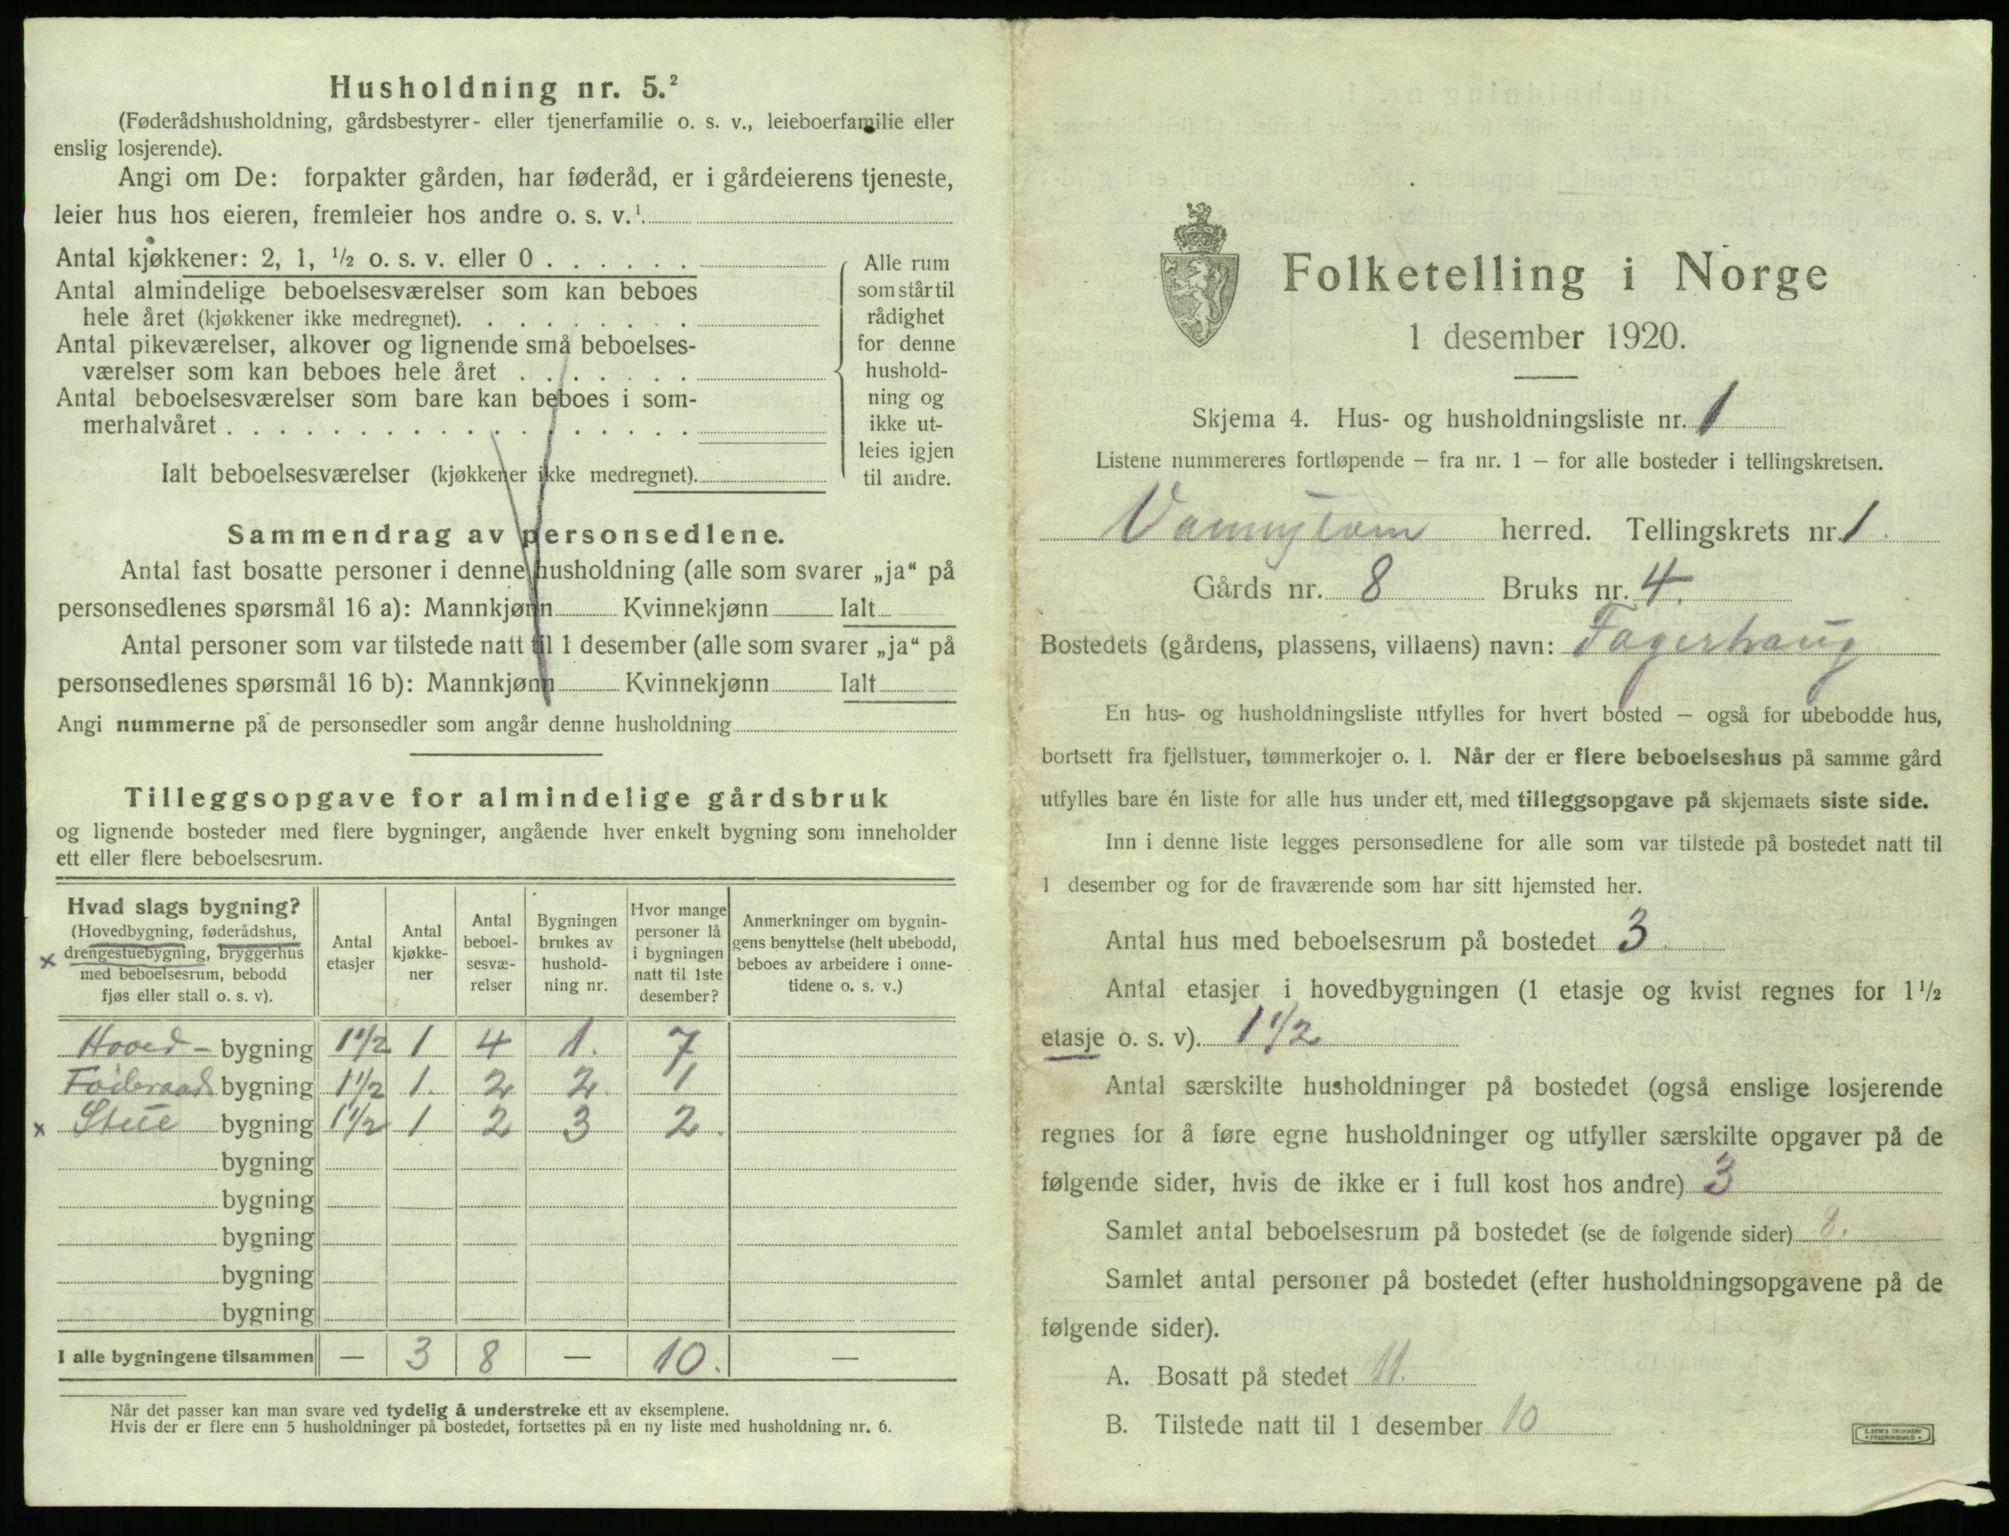 Husholdning nr. 5.²
(Føderådshusholdning, gårdsbestyrer- eller tjenerfamilie o. s. v., leieboerfamilie eller
enslig losjerende).
Angi om De: forpakter gården, har føderåd, er i gårdeierens tjeneste,
leier hus hos eieren, fremleier hos andre o. s. v.¹
Antal kjøkkener: 2, 1, ½ o. s. v. eller 0 . . . . . .
Antal almindelige beboelsesværelser som kan beboes
hele året (kjøkkener ikke medregnet). . . . . . . . .
Antal pikeværelser, alkover og lignende små beboelses-
værelser som kan beboes hele året . . . . . . .
Antal beboelsesværelser som bare kan beboes i som-
merhalvåret . . . . . . . . . . . . . . . . . .
Ialt beboelsesværelser (kjøkkener ikke medregnet).
Alle rum
som står til
rådighet
for denne
hushold-
ning og
ikke ut-
leies igjen
til andre.
Sammendrag av personsedlene.
Antal fast bosatte personer i denne husholdning (alle som svarer „ja“ på
personsedlenes spørsmål 16 a): Mannkjønn Kvinnekjønn Ialt
Antal personer som var tilstede natt til 1 desember (alle som svarer „ja“ på
personsedlenes spørsmål 16 b): Mannkjønn Kvinnekjønn Ialt
Angi nummerne på de personsedler som angår denne husholdning
Tilleggsopgave for almindelige gårdsbruk
og lignende bosteder med flere bygninger, angående hver enkelt bygning som inneholder
ett eller flere beboelsesrum.
Hvad slags bygning?
(Hovedbygning, føderådshus,
x drengestuebygning, bryggerhus
med beboelsesrum, bebodd
fjøs eller stall o. s. v).
Antal
etasjer
Antal
kjøkke-
ner
Antal
beboel-
sesvæ-
relser
Bygningen
brukes av
hushold-
ning nr.
Hvor mange
personer lå
i bygningen
natt til 1ste
desember?
Anmerkninger om bygnin-
gens benyttelse (helt ubebodd,
beboes av arbeidere i onne-
tidene o. s. v.)
Hoved- bygning 1½ 1 4 1. 7
Föderaads bygning 1½ 1. 2 2. 1
x Stue bygning 1½ 1 2 3 2.
bygning
bygning
bygning
bygning
bygning
I alle bygningene tilsammen — 3 8 — 10. —
Når det passer kan man svare ved tydelig å understreke ett av eksemplene.
Hvis der er flere enn 5 husholdninger på bostedet, fortsettes på en ny liste med husholdning nr. 6.
Folketelling i Norge
1 desember 1920.
Skjema 4. Hus- og husholdningsliste nr. 1
Listene nummereres fortløpende — fra nr. 1 — for alle bosteder i tellingskretsen.
herred. Tellingskrets nr. 1.
Gårds nr. 8 Bruks nr. 4.
Bostedets (gårdens, plassens, villaens) navn: Fagerhaug
En hus- og husholdningsliste utfylles for hvert bosted — også for ubebodde hus,
bortsett fra fjellstuer, tømmerkojer o. l. Når der er flere beboelseshus på samme gård
utfylles bare én liste for alle hus under ett, med tilleggsopgave på skjemaets siste side.
Inn i denne liste legges personsedlene for alle som var tilstede på bostedet natt til
1 desember og for de fraværende som har sitt hjemsted her.
Antal hus med beboelsesrum på bostedet 3.
Antal etasjer i hovedbygningen (1 etasje og kvist regnes for 1½
etasje o. s. v). 1½
Antal særskilte husholdninger på bostedet (også enslige losjerende
regnes for å føre egne husholdninger og utfyller særskilte opgaver på de
følgende sider, hvis de ikke er i full kost hos andre) 3
Samlet antal beboelsesrum på bostedet (se de følgende sider) 8.
Samlet antal personer på bostedet (efter husholdningsopgavene på de
følgende sider).
A. Bosatt på stedet 11.
B. Tilstede natt til 1 desember 10